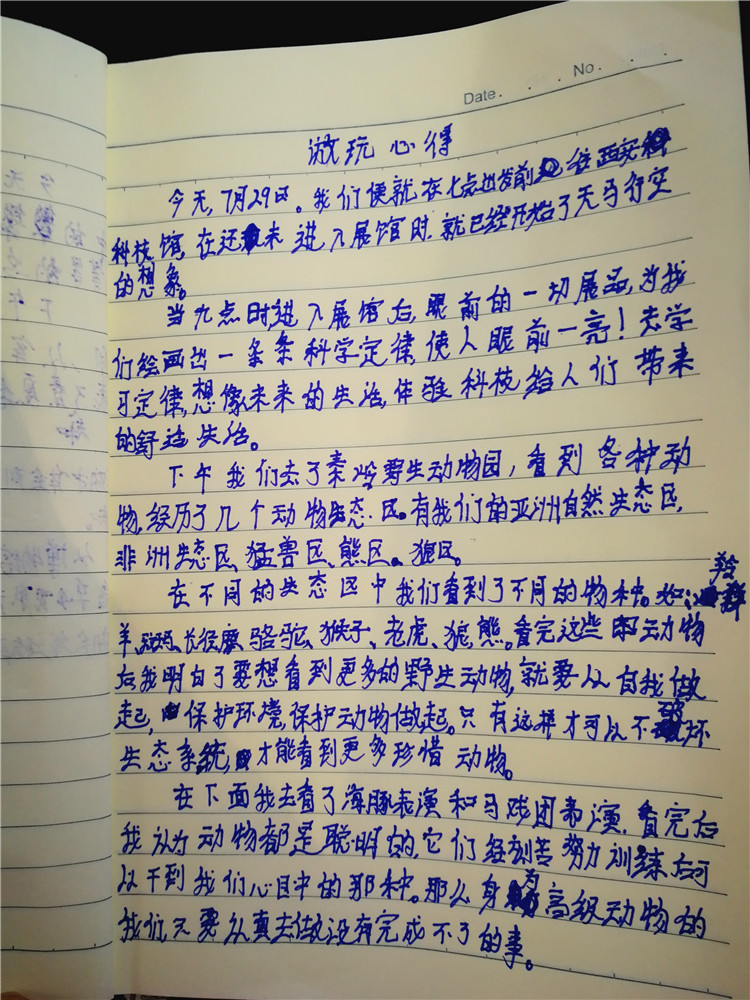 Date. No.
游玩心得
今天,7月29日。我们便就在七点出发前往西安科
科技馆,在还未进入展馆时就已经开始了天马行空
的想象。
当九点时进入展馆后,眼前的一切展品,为我
们绘画出一条条科学定律,使人眼前一亮!去学
习定律,想像未来的生活,体验科技给人们带来
的舒适生活。
下午我们去了秦岭野生动物园,看到各种动
物,经历了几个动物生态区。有我们的亚洲自然生态区,
非洲生态区、猛兽区、熊区、狼区。
在不同的生态区中我们看到了不同的物种。如:羚
羊、斑马、长颈鹿、骆驼、猴子、老虎、狼、熊。看完这些动物
后我明白了要想看到更多的野生动物,就要从自我做
起,保护环境,保护动物做起。只有这样才可以不破坏
生态系统,才能看到更多珍惜动物。
在下面我去看了海豚表演和马戏团表演,看完后
我认为动物都是聪明的,它们经刻苦努力训练后可
以干到我们心目中的那种。那么身为高级动物的
我们只要认真去做没有完成不了的事。